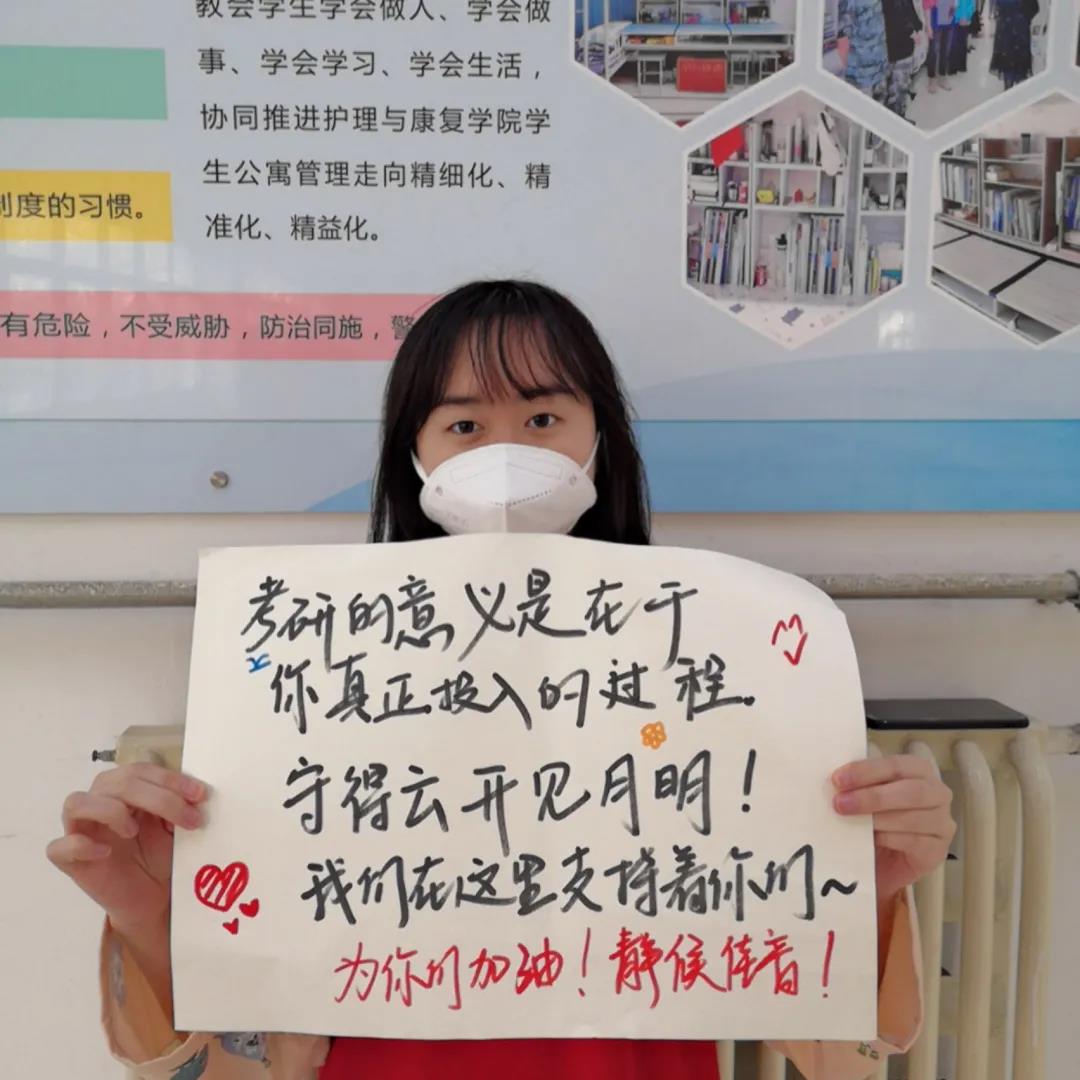 教会学生学会做人、学会做
事、学会学习、学会生活，
协同推进护理与康复学院学
生公寓管理走向精细化、精
准化、精益化。
制度的习惯。
有危险，不受威胁，防治同施，警
考研的意义是在于
你真正投入的过程。
守得云开见月明！
我们在这里支持着你们~
为你们加油！静候佳音！